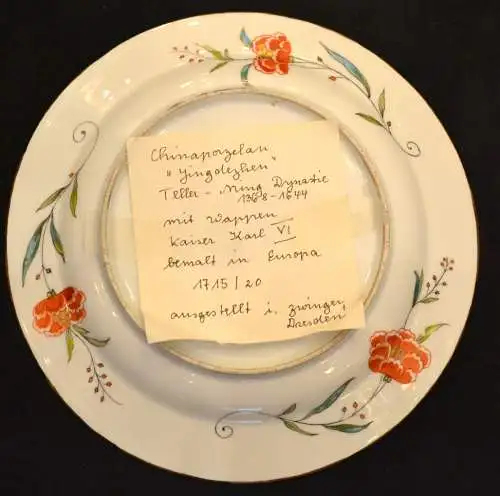 Chinaporzelan
"Yingdezhen"
Teller - Ming Dynastie
1368-1644
mit Wappen
Kaiser Karl VI
bemalt in Europa
1715/20
ausgestellt i. Zwinger,
Dresden